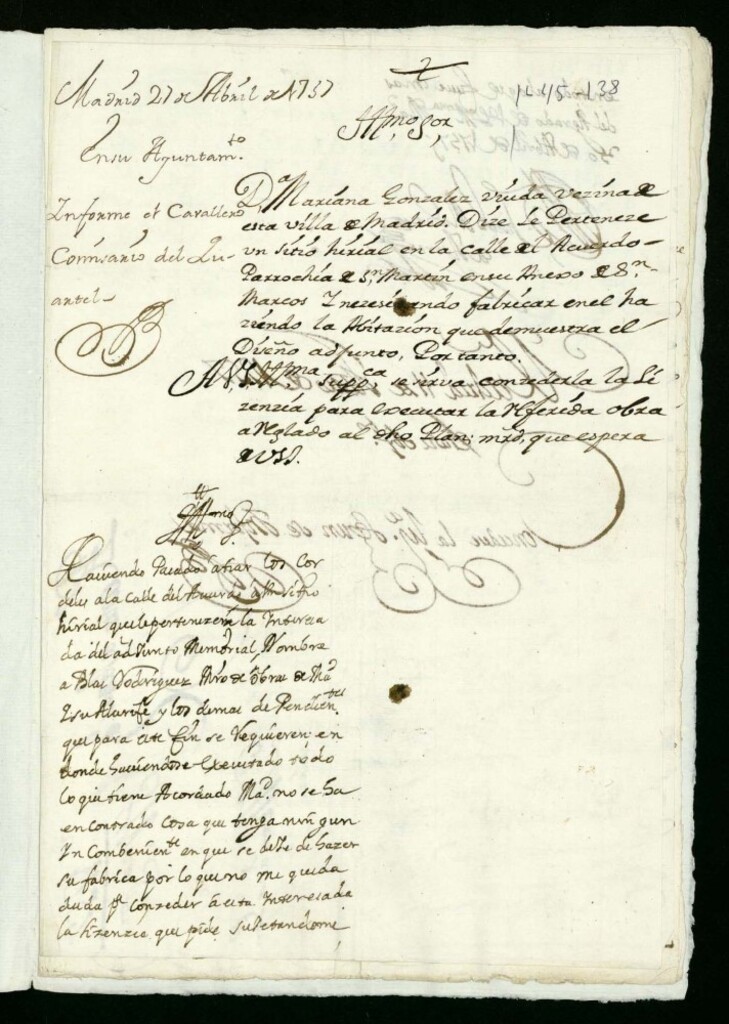 2
1-45-138
Madrid 27 de Abril de 1737
En su Ayuntam.to
Informe el Cavallero
Comisario del Qu-
artel
Illmo. Sor
Da. Mariana Gonzalez viuda vezina de
esta villa de Madrid. Dize le Perteneze
un sitio herial en la calle del Acuerdo
Parrochia de Sn. Martin en su Anexo de Sn.
Marcos Y nezesitando fabricar en el ha
ziendo la Abitazion que demuestra el
Diseño adjunto, Por tanto.
A V.S. Illma. suppca. se sirva conzederla la Li
zenzia para executar la Referida obra
aReglado al dho Plan; mrd. que espera
de VSI.
Illmo. S.
Haviendo Pasado a tirar los Cor
deles a la Calle del Acuerdo à un sitio
herial que le pertenezen la Interesa
da del adjunto Memorial, Nombra
a Blas Rodriguez Mro de obras de Md.
Y su Alarife y los demas de Pendien.tes
que para este fin se Requieren; en
donde haviendose Executado todo
lo que tiene Acordado Md. no se ha
encontrado Cosa que tenga ningun
Yn Combenien.te en que se deje de hazer
su fabrica por lo que no me queda
duda pa. conzeder à esta Interesada
la lizenzie que pide sujetandome